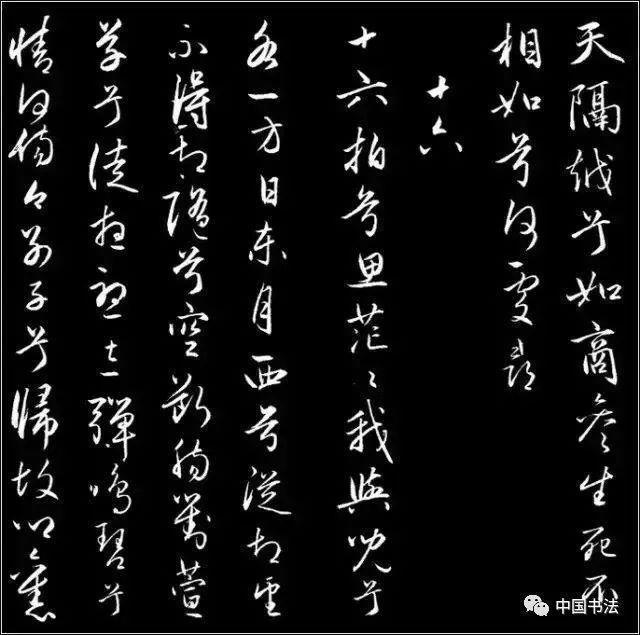 天隔越兮如商參生死不
相知兮何處尋
十六
十六拍兮思茫々我與兒兮
各一方日東月西兮徒相望
不得相隨兮空斷腸對萱
草兮徒想憂忘彈鳴琴兮
情何傷今別子兮歸故鄉舊
中国书法